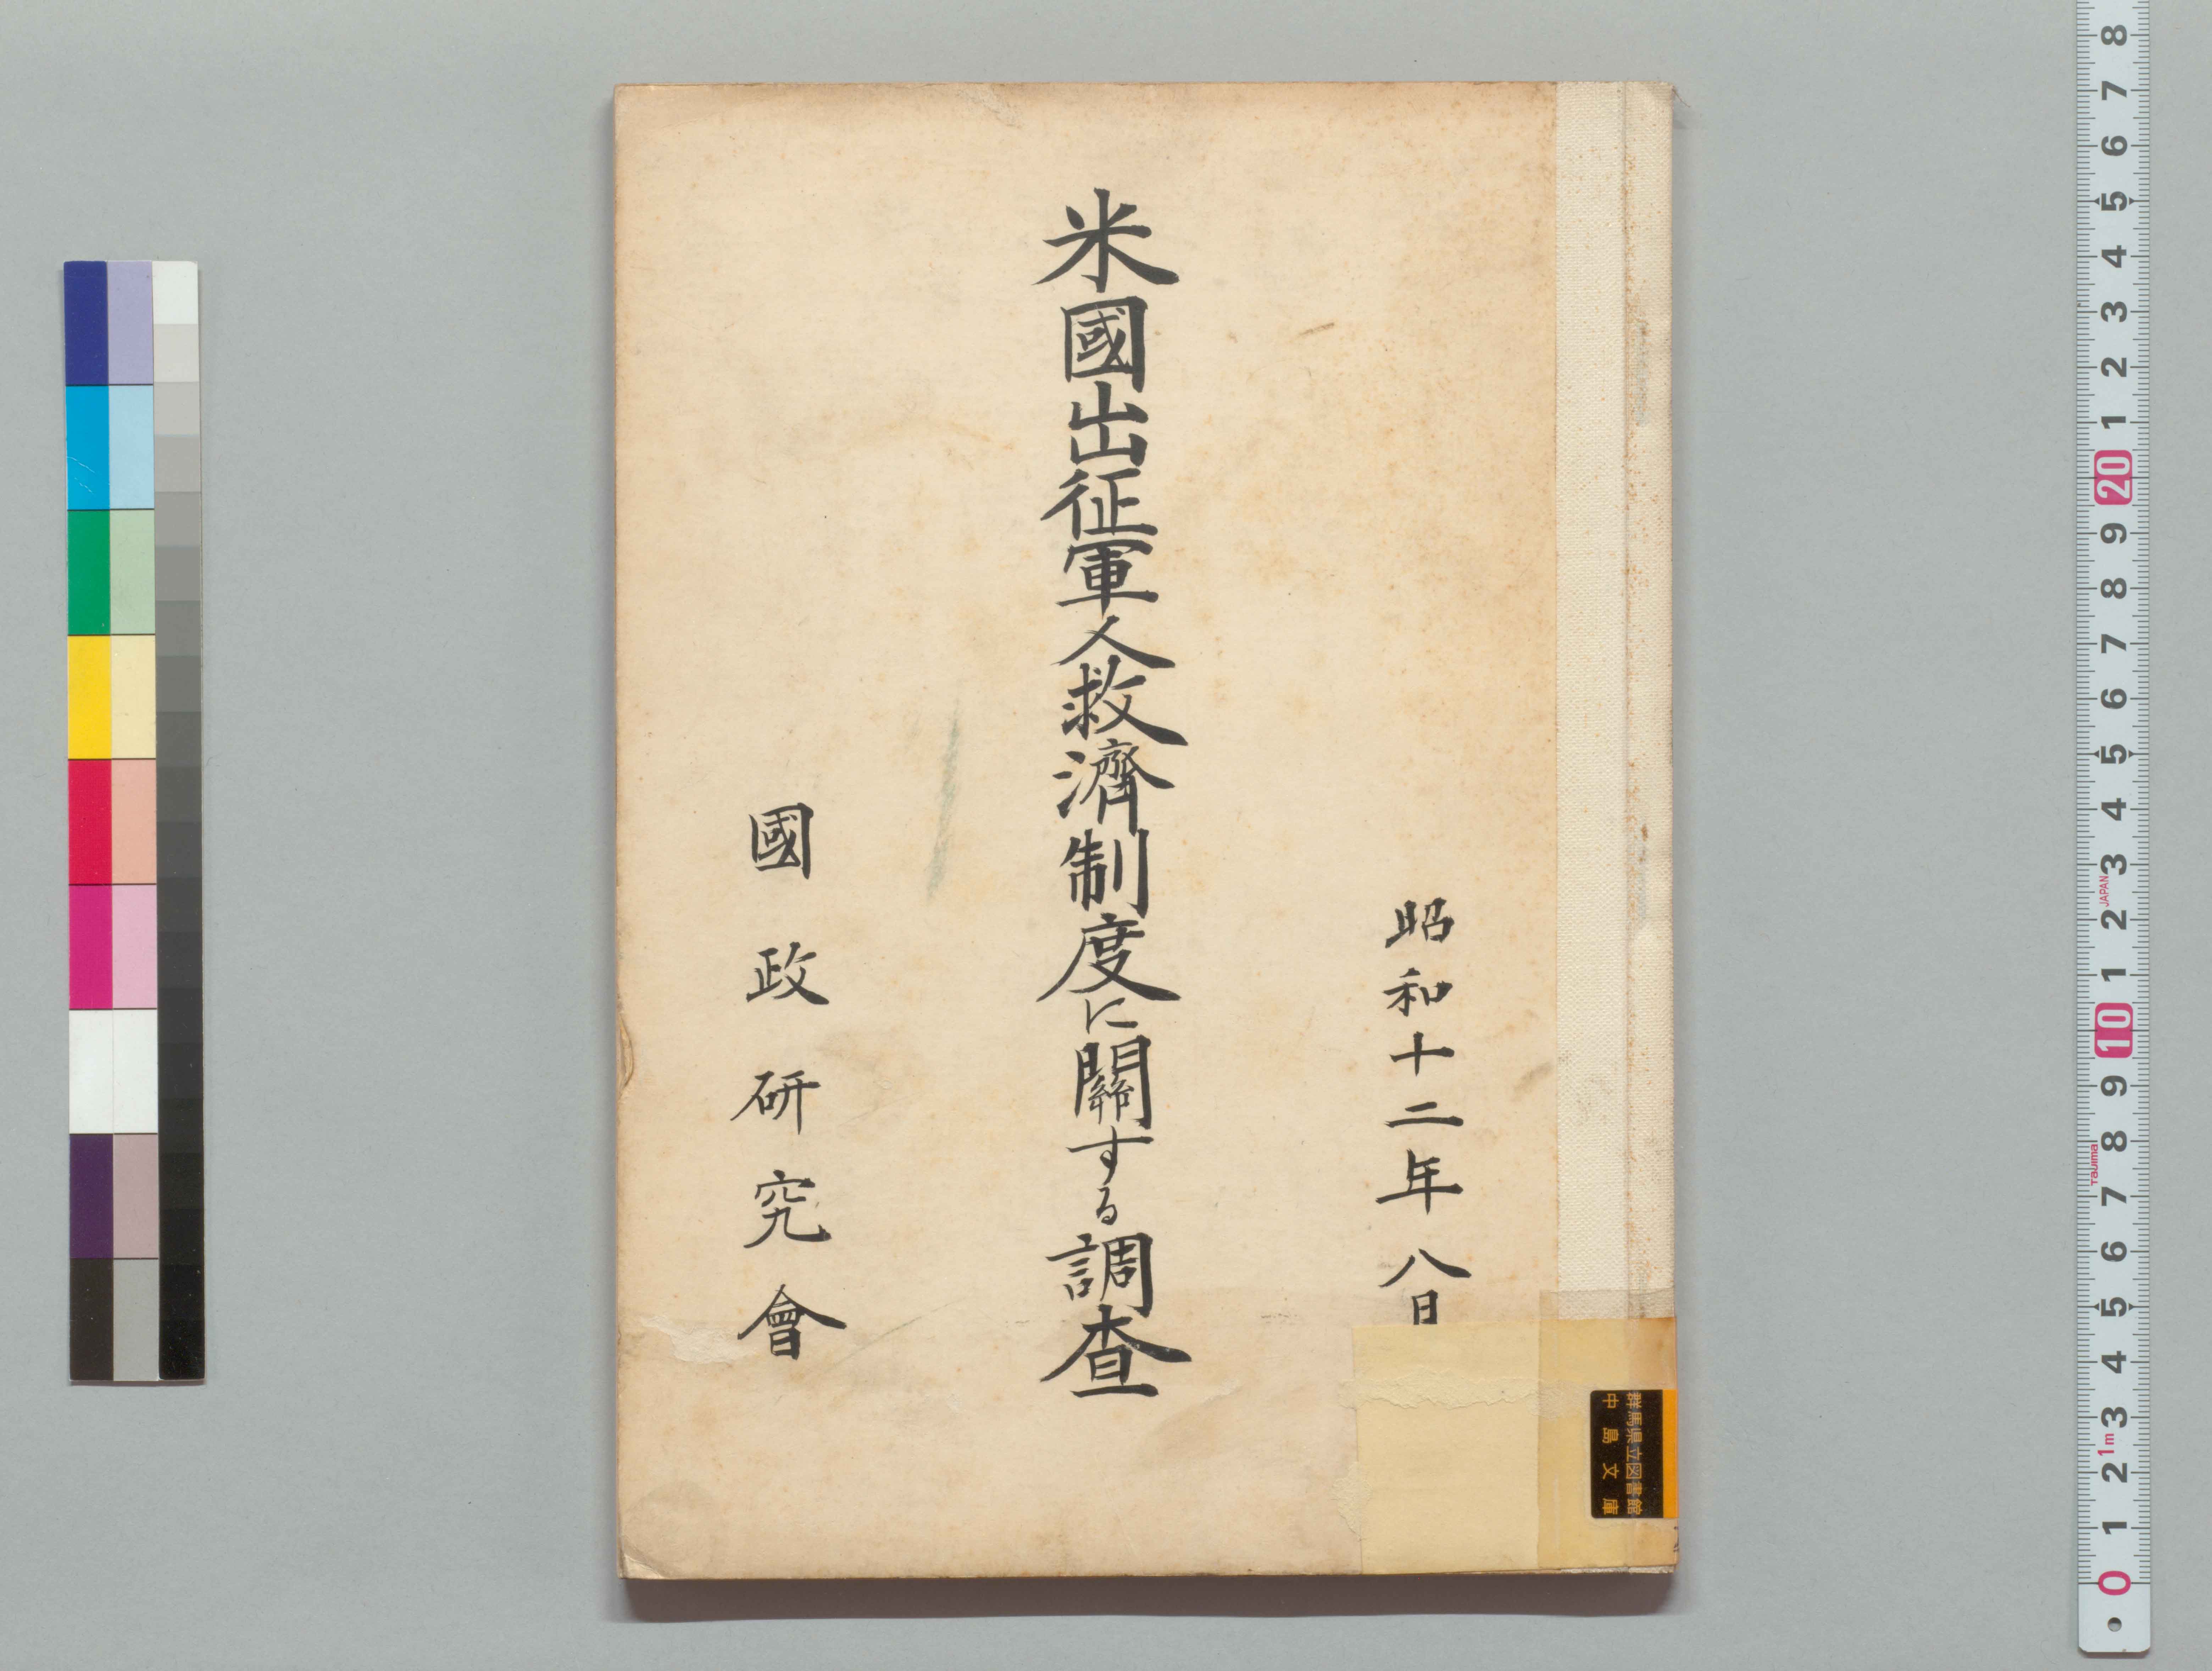 昭和十二年八月
米國出征軍人救濟制度に關する調査
國政研究會
群馬県立図書館
中島文庫
0 1 2 3 4 5 6 7 8 9 10 1 2 3 4 5 6 7 8 9 20 1 2 3 4 5 6 7 8
1m
Tajima
JAPAN